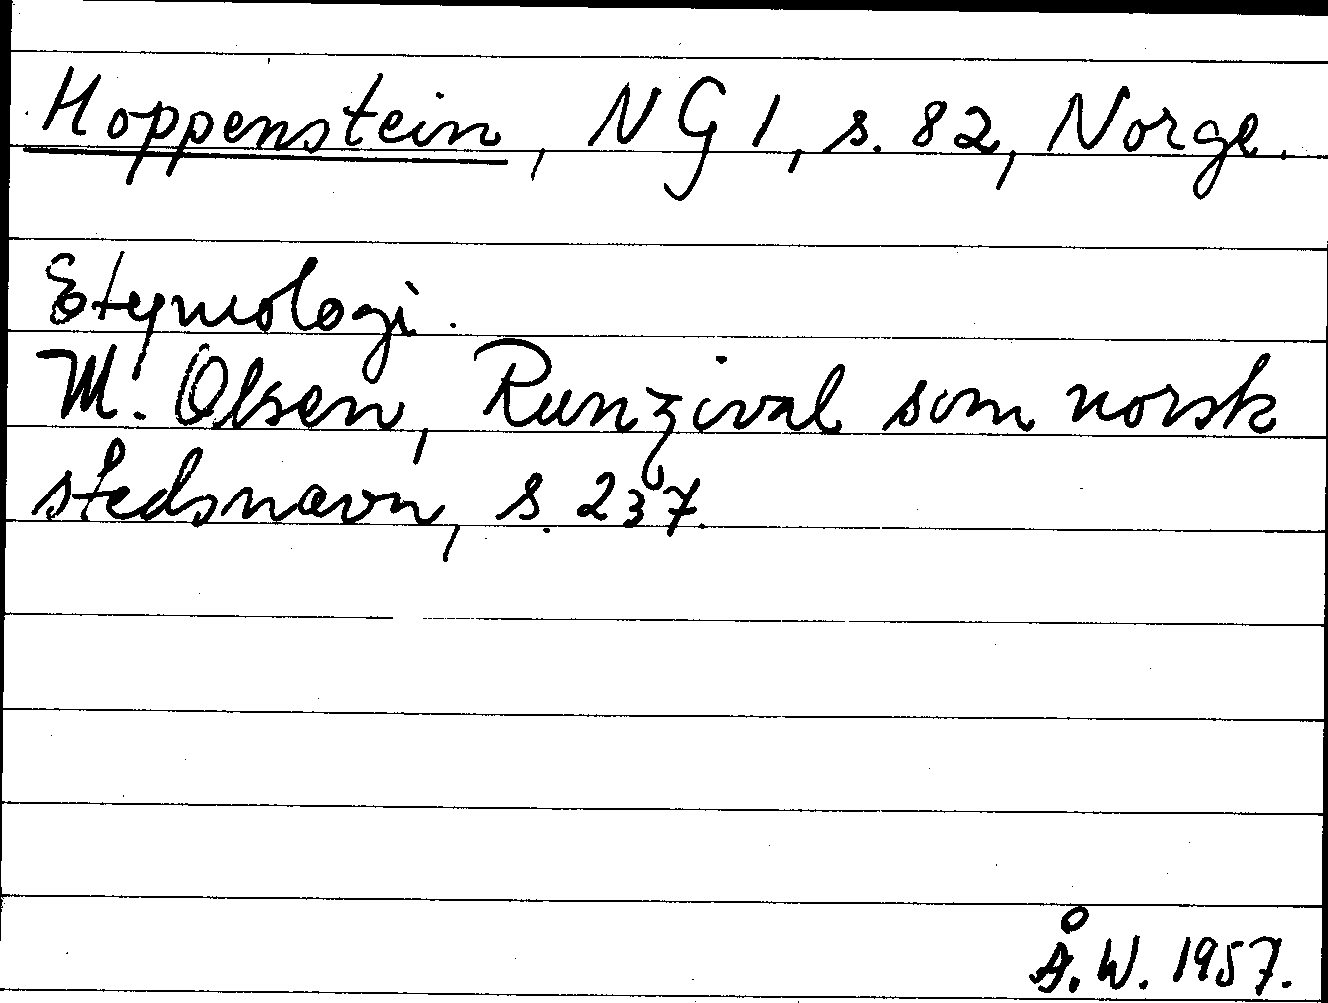 Hoppenstein, NG 1, s. 82, Norge.
Etymologi.
M. Olsen, Runzival som norsk
stedsnavn, s. 237.
Å. W. 1957.